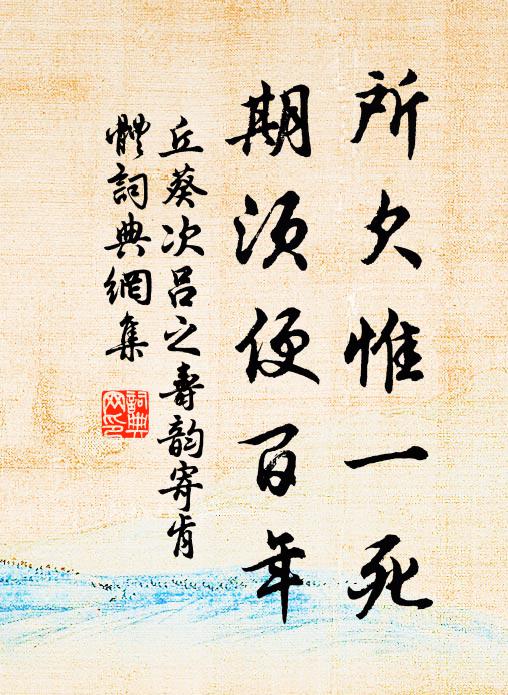 所欠惟一死
期須便百年
丘葵次呂之壽韵寄肯
體詞典網集
詞典
网印